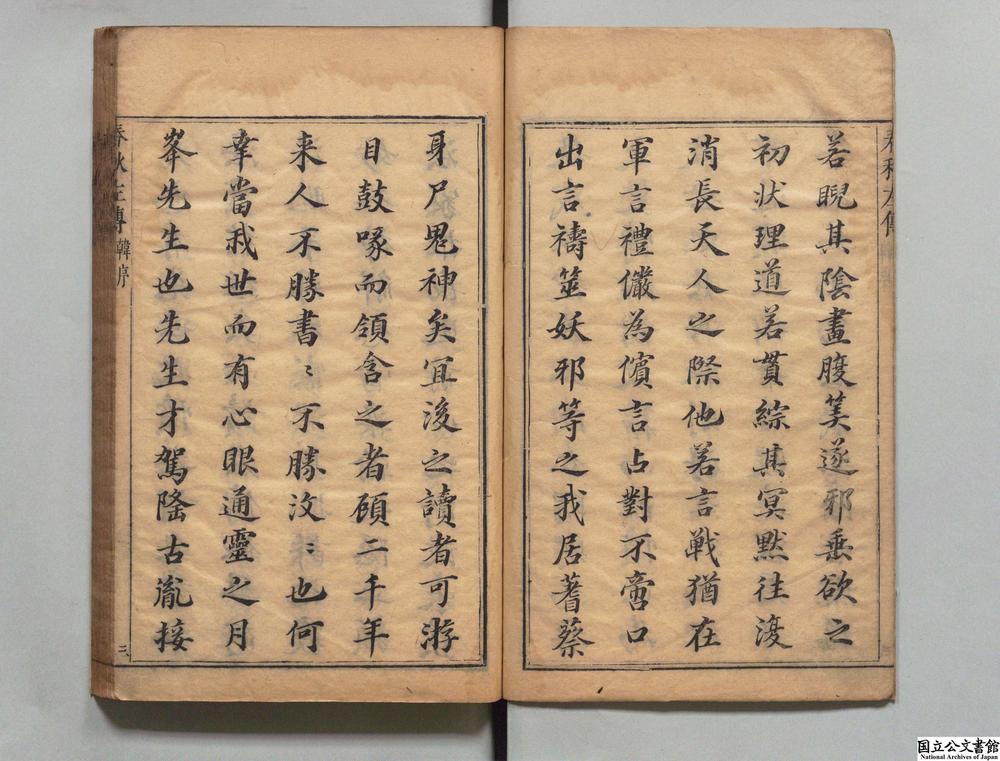 若睨其陰畫腹美遂邪乗欲之
初狀理道若貫綜其冥黙往復
消長天人之際他若言戰猶在
軍言禮儼為儐言占對不啻口
出言禱筮妖邪等之我居蓍蔡
身尸鬼神矣冝後之讀者可游
目鼓喙而頷含之者碩二千年
来人不勝書〻不勝汶〻也何
幸當我世而有心眼通靈之月
峯先生也先生才駕隆古胤接
春秋左傳
韓序
三
国立公文書館
National Archives of Japan